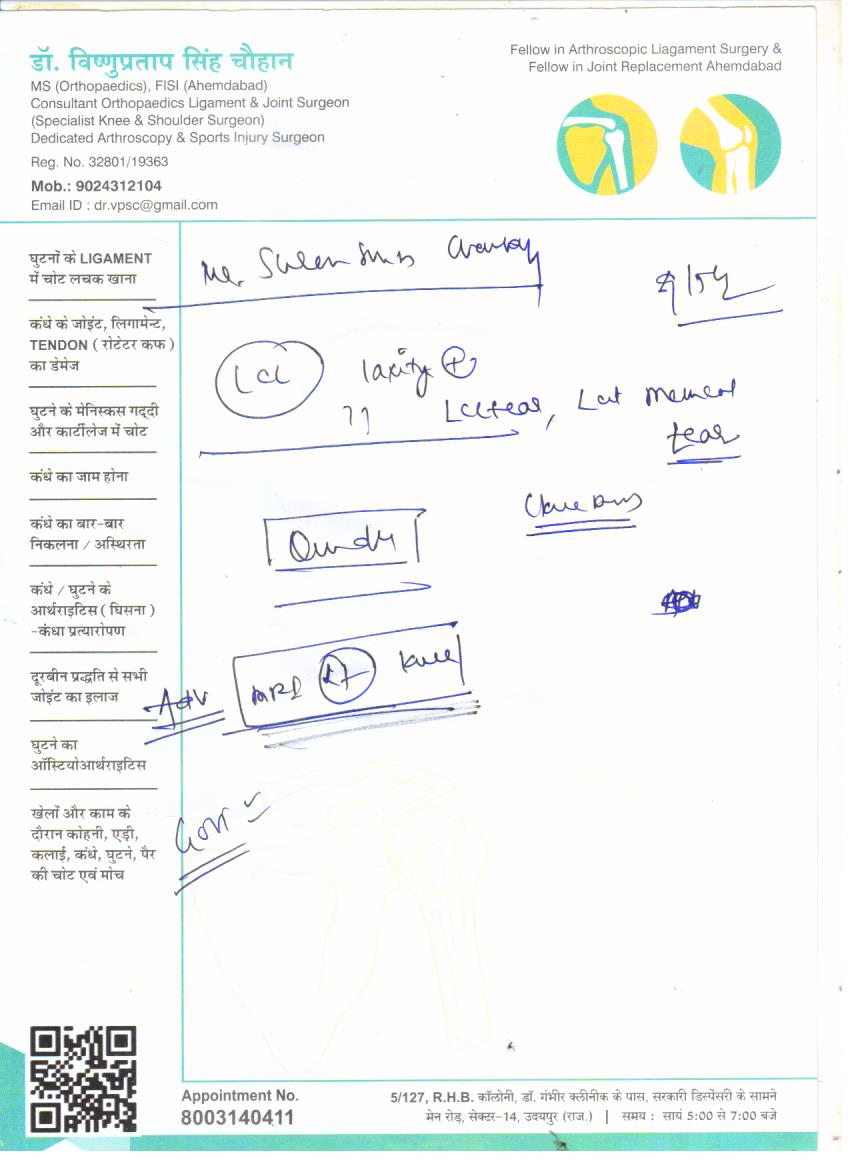 डॉ. विष्णुप्रताप सिंह चौहान
MS (Orthopaedics), FISI (Ahemdabad)
Consultant Orthopaedics Ligament & Joint Surgeon
(Specialist Knee & Shoulder Surgeon)
Dedicated Arthroscopy & Sports Injury Surgeon
Reg. No. 32801/19363
Mob.: 9024312104
Email ID : dr.vpsc@gmail.com
Fellow in Arthroscopic Liagament Surgery &
Fellow in Joint Replacement Ahemdabad
घुटनों के LIGAMENT
में चोट लचक खाना
कंधे के जोइंट, लिगामेन्ट,
TENDON ( रोटेटर कफ )
का डेमेज
घुटने के मेनिस्कस गद्दी
और कार्टीलेज में चोट
कंधे का जाम होना
कंधे का बार-बार
निकलना / अस्थिरता
कंधे / घुटने के
आर्थराइटिस ( घिसना )
-कंधा प्रत्यारोपण
दूरबीन प्रद्धति से सभी
जोइंट का इलाज
घुटने का
ऑस्टियोआर्थराइटिस
खेलों और काम के
दौरान कोहनी, एड़ी,
कलाई, कंधे, घुटने, पैर
की चोट एवं मोच
Mr.
LCL laxity +
?? LCL tear, Lat
tear
Adv MRI LT knee
Appointment No.
8003140411
5/127, R.H.B. कॉलोनी, डॉ. गंभीर क्लीनीक के पास, सरकारी डिस्पेंसरी के सामने
मेन रोड़, सेक्टर-14, उदयपुर (राज.) | समय : सायं 5:00 से 7:00 बजे